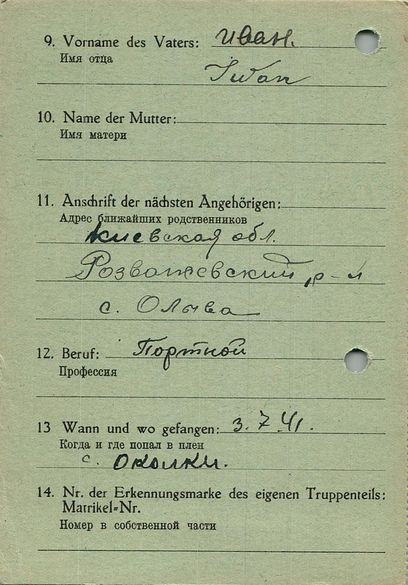 9. Vorname des Vaters: Иван.
Имя отца
Iwan
10. Name der Mutter:
Имя матери
11. Anschrift der nächsten Angehörigen:
Адрес ближайших родственников
Киевская обл.
Розважевский р-н
с. Олыва
12. Beruf: Портной
Профессия
13 Wann und wo gefangen: 3.7.41.
Когда и где попал в плен
с. Околки.
14. Nr. der Erkennungsmarke des eigenen Truppenteils:
Matrikel=Nr.
Номер в собственной части